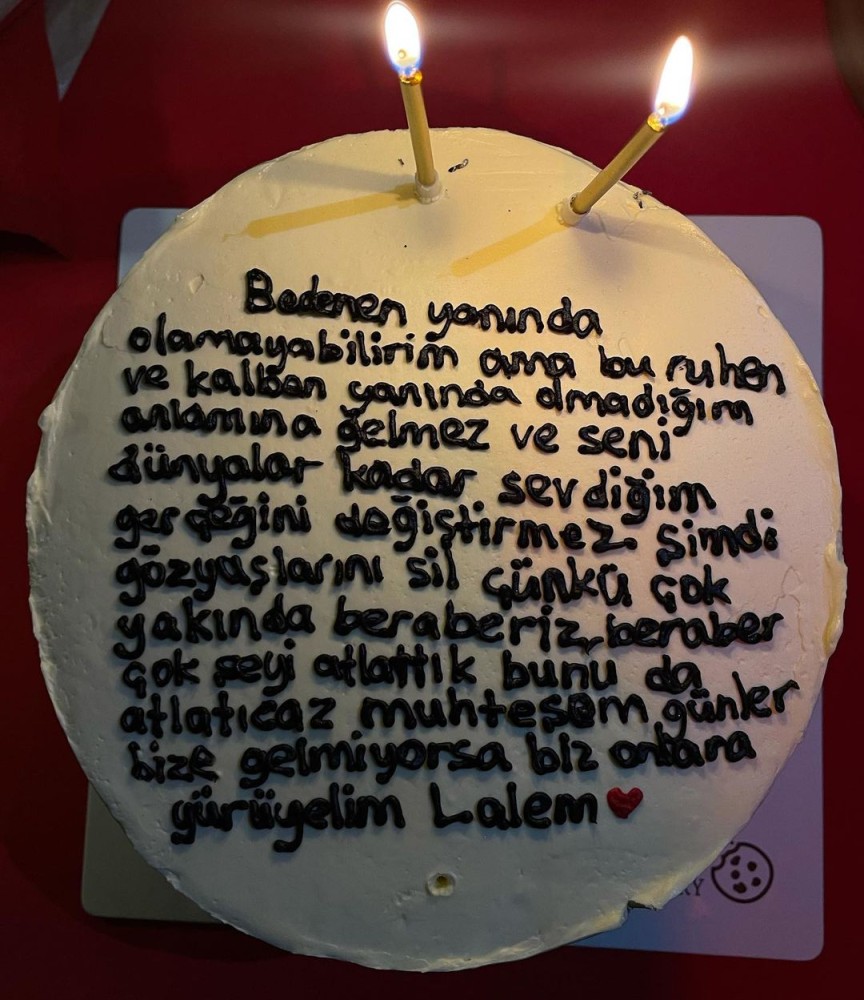 Bedenen yanında
olamayabilirim ama bu ruhen
ve kalben yanında olmadığım
anlamına gelmez ve seni
dünyalar kadar sevdiğim
gerçeğini değiştirmez. Şimdi
gözyaşlarını sil çünkü çok
yakında beraberiz, beraber
çok şeyi atlattık bunu da
atlatıcaz muhteşem günler
bize gelmiyorsa biz onlara
yürüyelim Lalem